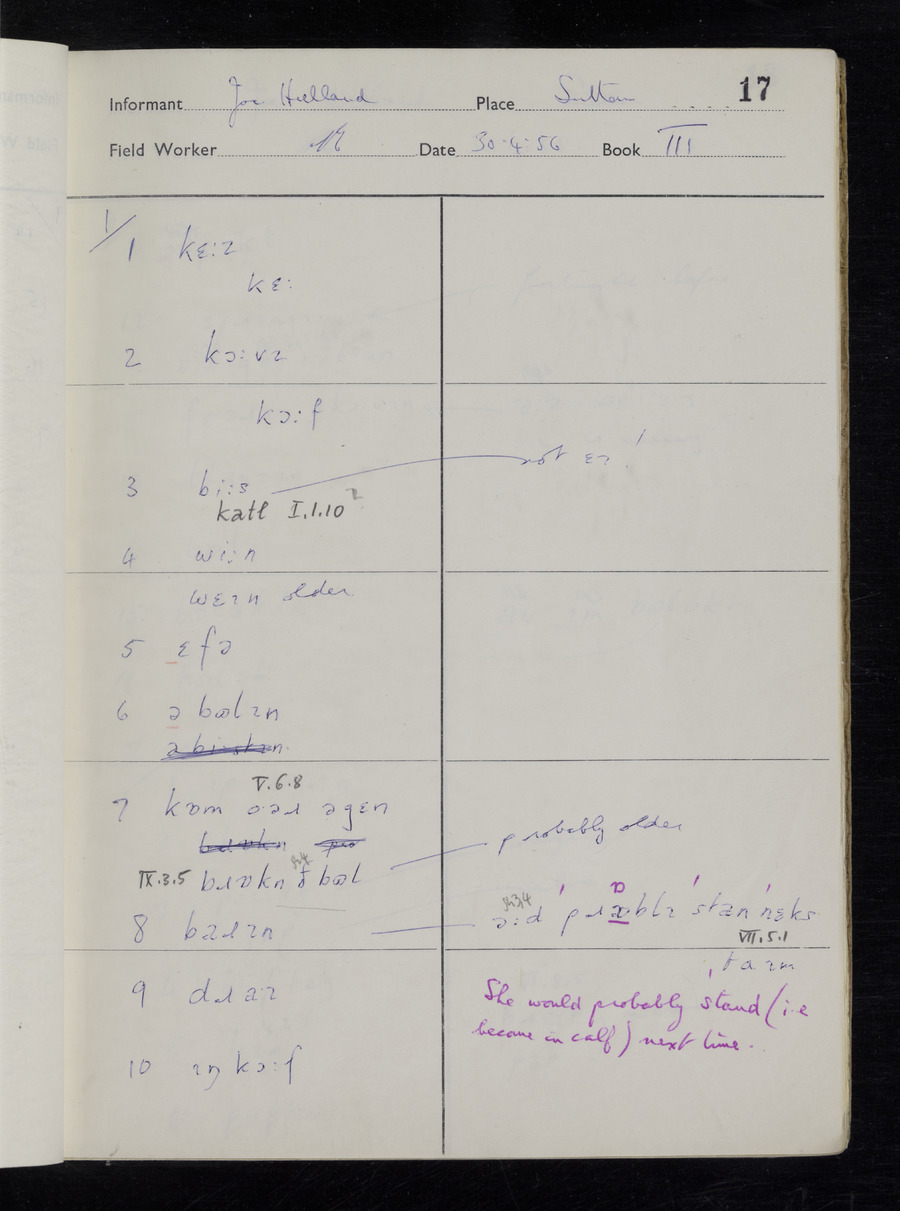 17
Informant Joe Hulland Place Sutton
Field Worker Date 30·4·56 Book III
1/
1 kɛːz
kɛː
2 kɔːvz
kɔːf
3 biːs not ɛɪ !
katl I.1.10
4 wiːn
wɛɪn older
5 ɛfə
6 ə bʊlɪn
V.6.8
7 kʊm oːəɹ əgɛn
probably older
IX.3.5 bɹɒkn ð bʊl
8 baɹɪn əːd ˈpɹɒblɪ ˈstan ˈnɛks
VII.5.1
ˌtaɪm
9 dɹaɪ
She would probably stand (i.e
become in calf) next time.
10 ɪŋ kɔːf